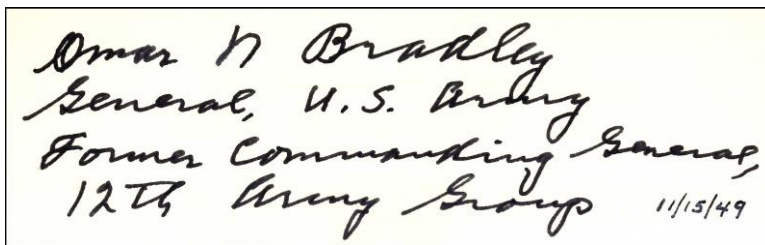 Omar N Bradley
General, U.S. Army
Former Commanding General,
12Th Army Group 11/15/49